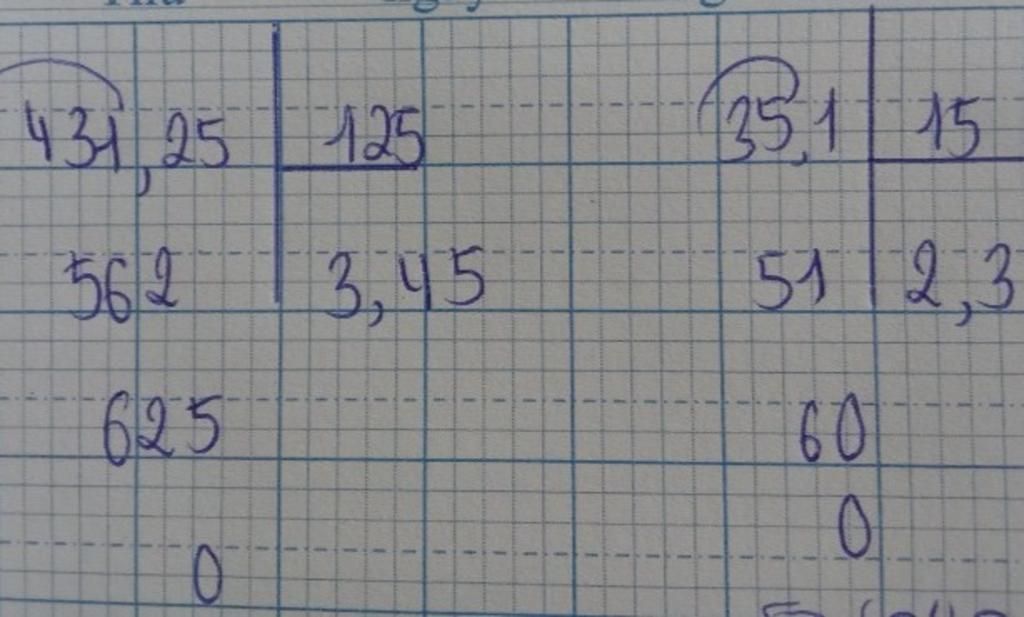 431,25 125
562 3,45
625
0
35,1 15
51 2,3
60
0